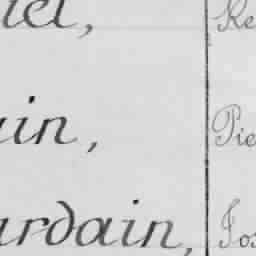 iel, Re
in, Pie
urdain, Jos